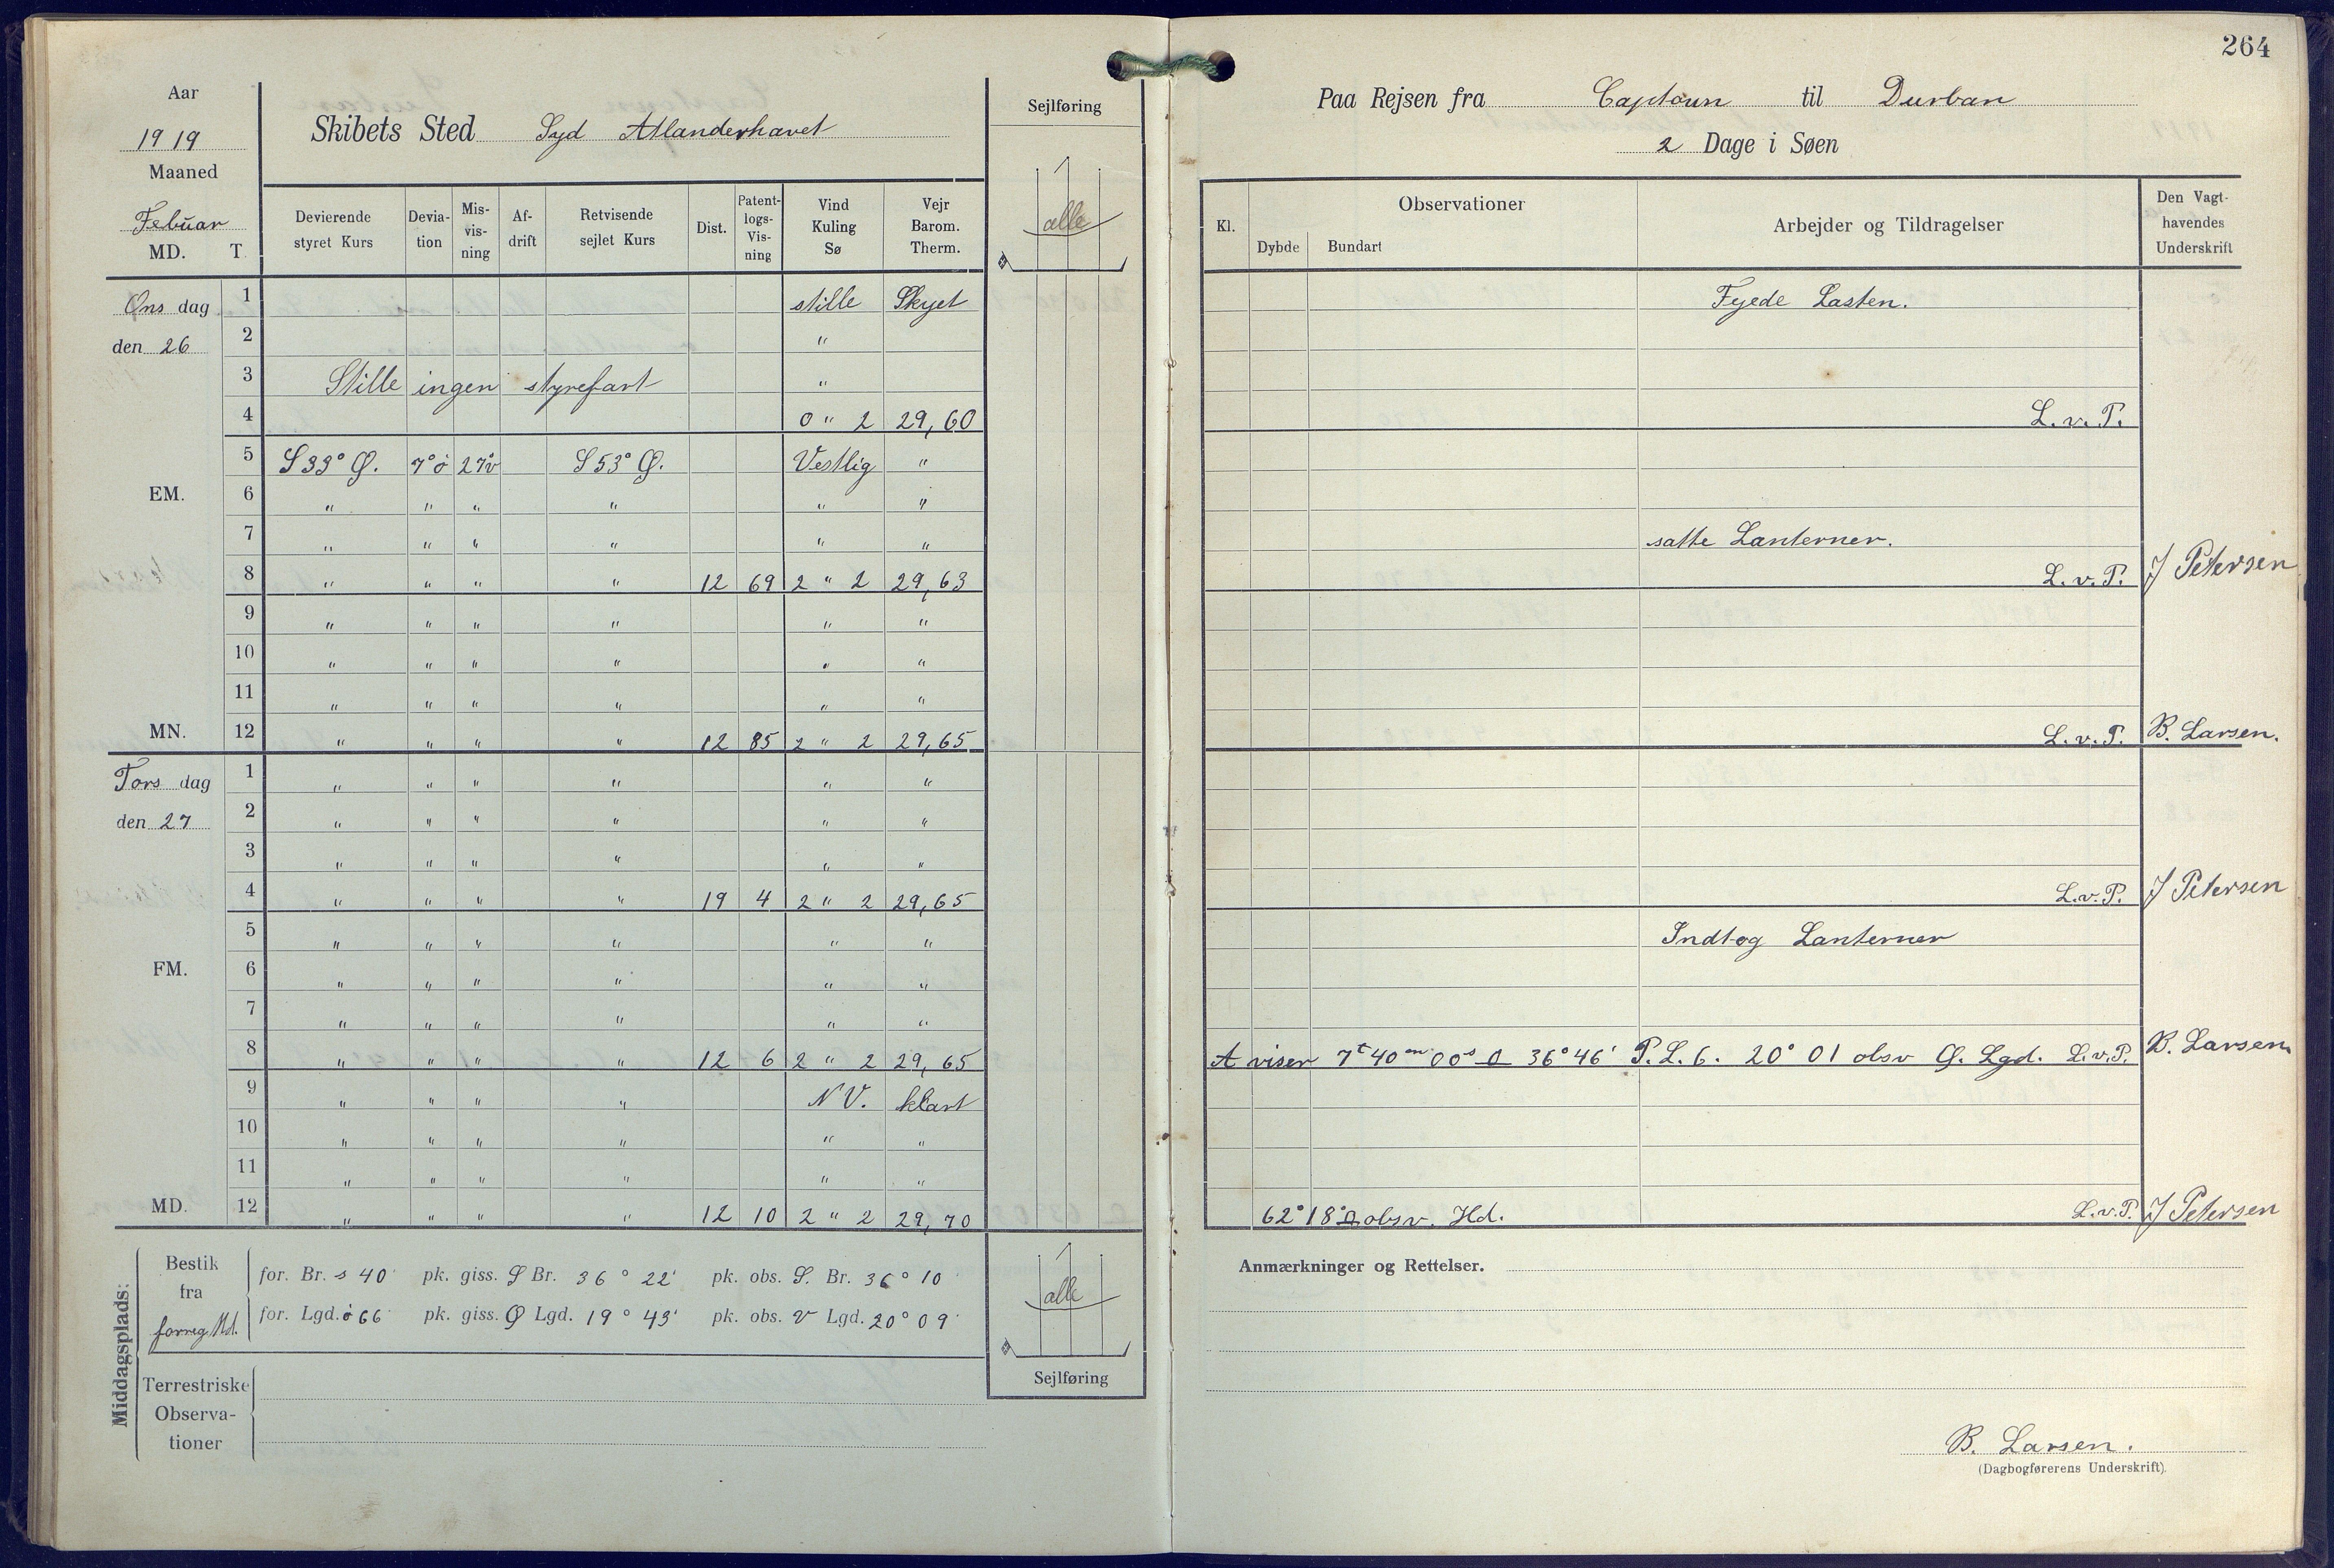 264
Aar
1919
Maaned
Febuar
MD. T.
Skibets Sted Syd Atlanderhavet
Sejlføring
Paa Rejsen fra Captoun til Durban
2 Dage i Søen
Devierende styret Kurs | Devia-tion | Mis-vis-ning | Af-drift | Retvisende sejlet Kurs | Dist. | Patent-logs-Vis-ning | Vind Kuling Sø | Vejr Barom. Therm.
alle
Kl. | Observationer | Dybde | Bundart | Arbejder og Tildragelser | Den Vagt-havendes Underskrift
Ons dag 1 stille Skyet Fejede Lasten.
den 26 2 "
3 Stille ingen styrefart "
4 0 " 2 29,60 L.v.P.
5 S 33° Ø. 7° ö 27° v S 53° Ø. Vestlig "
EM. 6 " " " " " "
7 " " " " " " satte Lanterner.
8 " " " " 12 69 2 " 2 29,63 L.v.P. J Petersen
9 " " " " " "
10 " " " " " "
11 " " " " " "
MN. 12 " " " " 12 85 2 " 2 29,65 L.v.P. B. Larsen.
Tors dag 1 " " " " " "
den 27 2 " " " " " "
3 " " " " " "
4 " " " " 19 4 2 " 2 29,65 L.v.P. J Petersen
5 " " " " " " Indtog Lanterner
FM. 6 " " " " " "
7 " " " " " "
8 " " " " 12 6 2 " 2 29,65 A viser 7t 40m 00s 36° 46' P. L. 6. 20° 01 obsv Ø. Lgd. L.v.P. B. Larsen
9 " " " " NV. klart
10 " " " " " "
11 " " " " " "
MD. 12 " " " " 12 10 2 " 2 29,70 62° 18' obsv. Hd. L.v.P. J Petersen
Middagsplads:
Bestik fra forreg Md.
for. Br. s 40' pk. giss. S Br. 36° 22' pk. obs. S. Br. 36° 10'
for. Lgd. ö 66' pk. giss. Ø Lgd. 19° 43' pk. obs. V Lgd. 20° 09'
alle
Sejlføring
Terrestriske
Observa-
tioner
Anmærkninger og Rettelser.
B. Larsen.
(Dagbogførerens Underskrift).